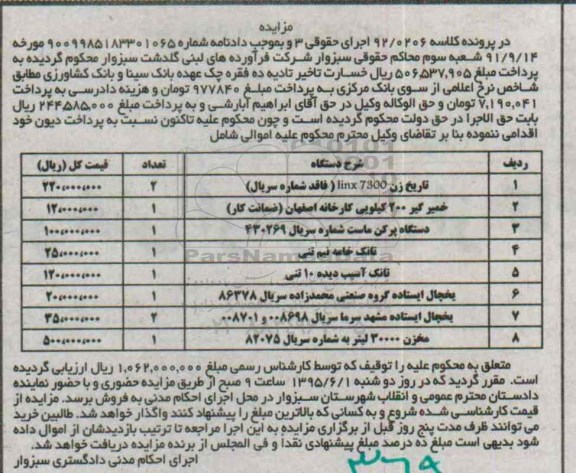 مزایده
در پرونده کلاسه ۹۲/۰۲۰۶ اجرای حقوقی ۳ و بموجب دادنامه شماره ۹۰۰۹۹۸۵۱۸۳۳۰۱۰۶۵ مورخه
۹۱/۹/۱۴ شعبه سوم محاکم حقوقی سبزوار شرکت فرآورده های لبنی گلدشت سبزوار محکوم گردیده به
پرداخت مبلغ ۵۰۶,۵۳۷,۹۰۵ ریال خسارت تاخیر تادیه ده فقره چک عهده بانک سینا و بانک کشاورزی مطابق
شاخص نرخ اعلامی از سوی بانک مرکزی به پرداخت مبلغ ۹۷۷۸۴۰ تومان و هزینه دادرسی به پرداخت
۷,۱۹۰,۰۴۱ تومان و حق الوکاله وکیل در حق آقای ابراهیم آبارشی و به پرداخت مبلغ ۲۴۴,۵۸۵,۰۰۰ ریال
بابت حق الاجرا در حق دولت محکوم گردیده است و چون محکوم علیه تاکنون نسبت به پرداخت دیون خود
اقدامی ننموده بنا بر تقاضای وکیل محترم محکوم علیه اموالی شامل
ردیف شرح دستگاه تعداد قیمت کل (ریال)
۱ تاریخ زن linx 7300 ( فاقد شماره سریال) ۲ ۲۲۰,۰۰۰,۰۰۰
۲ خمیر گیر ۲۰۰ کیلویی کارخانه اصفهان (ضمانت کار) ۱ ۱۲,۰۰۰,۰۰۰
۳ دستگاه پرکن ماست شماره سریال ۴۳۰۲۶۹ ۱ ۱۰۰,۰۰۰,۰۰۰
۴ تانک خامه نیم تنی ۱ ۲۵,۰۰۰,۰۰۰
۵ تانک آسیب دیده ۱۰ تنی ۱ ۱۲۰,۰۰۰,۰۰۰
۶ یخچال ایستاده گروه صنعتی محمدزاده سریال ۸۶۳۷۸ ۱ ۲۰,۰۰۰,۰۰۰
۷ یخچال ایستاده مشهد سرما سریال ۰۰۸۶۹۸ و ۰۰۸۷۰۱ ۲ ۳۵,۰۰۰,۰۰۰
۸ مخزن ۳۰۰۰۰ لیتر به شماره سریال ۸۲۰۷۵ ۱ ۵۰۰,۰۰۰,۰۰۰
ParsNamadData
متعلق به محکوم علیه را توقیف که توسط کارشناس رسمی مبلغ ۱,۰۶۲,۰۰۰,۰۰۰ ریال ارزیابی گردیده
است. مقرر گردید که در روز دو شنبه ۱۳۹۵/۶/۱ ساعت ۹ صبح از طریق مزایده حضوری و با حضور نماینده
دادستان محترم عمومی و انقلاب شهرستان سبزوار در محل اجرای احکام مدنی به فروش برسد. مزایده از
قیمت کارشناسی شده شروع و به کسانی که بالاترین مبلغ را پیشنهاد کنند واگذار خواهد شد. طالبین خرید
می توانند ظرف مدت پنج روز قبل از برگزاری مزایده به این اجرا مراجعه تا ترتیب بازدیدشان از اموال داده
شود بدیهی است مبلغ ده درصد مبلغ پیشنهادی نقدا و فی المجلس از برنده مزایده دریافت خواهد شد.
اجرای احکام مدنی دادگستری سبزوار